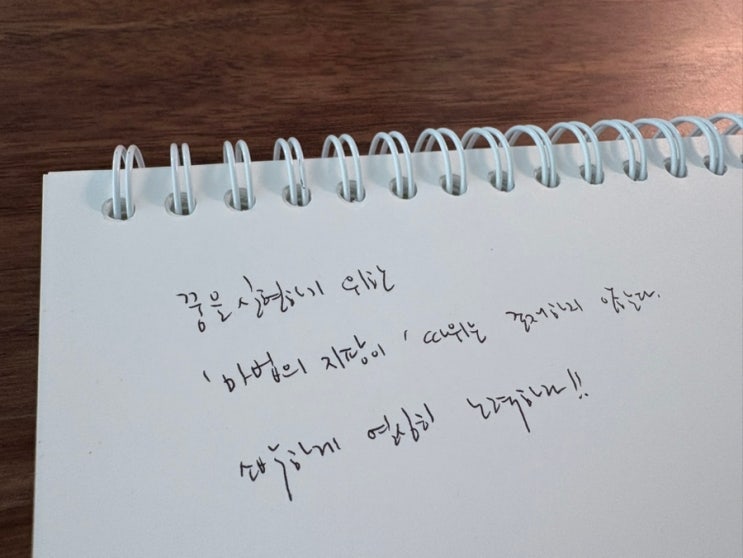 꿈을 실현하기 위한
'마법의 지팡이' 따위는 존재하지 않는다.
열심히 노력하라!!